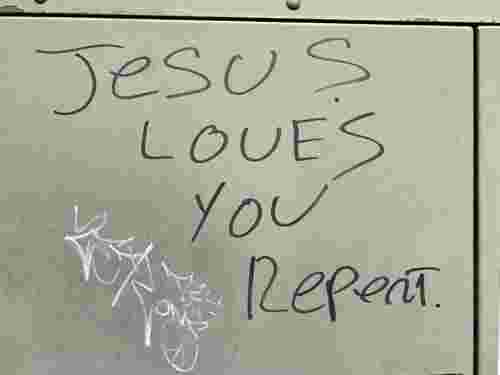 JESUS
LOVES
YOU
Repent.